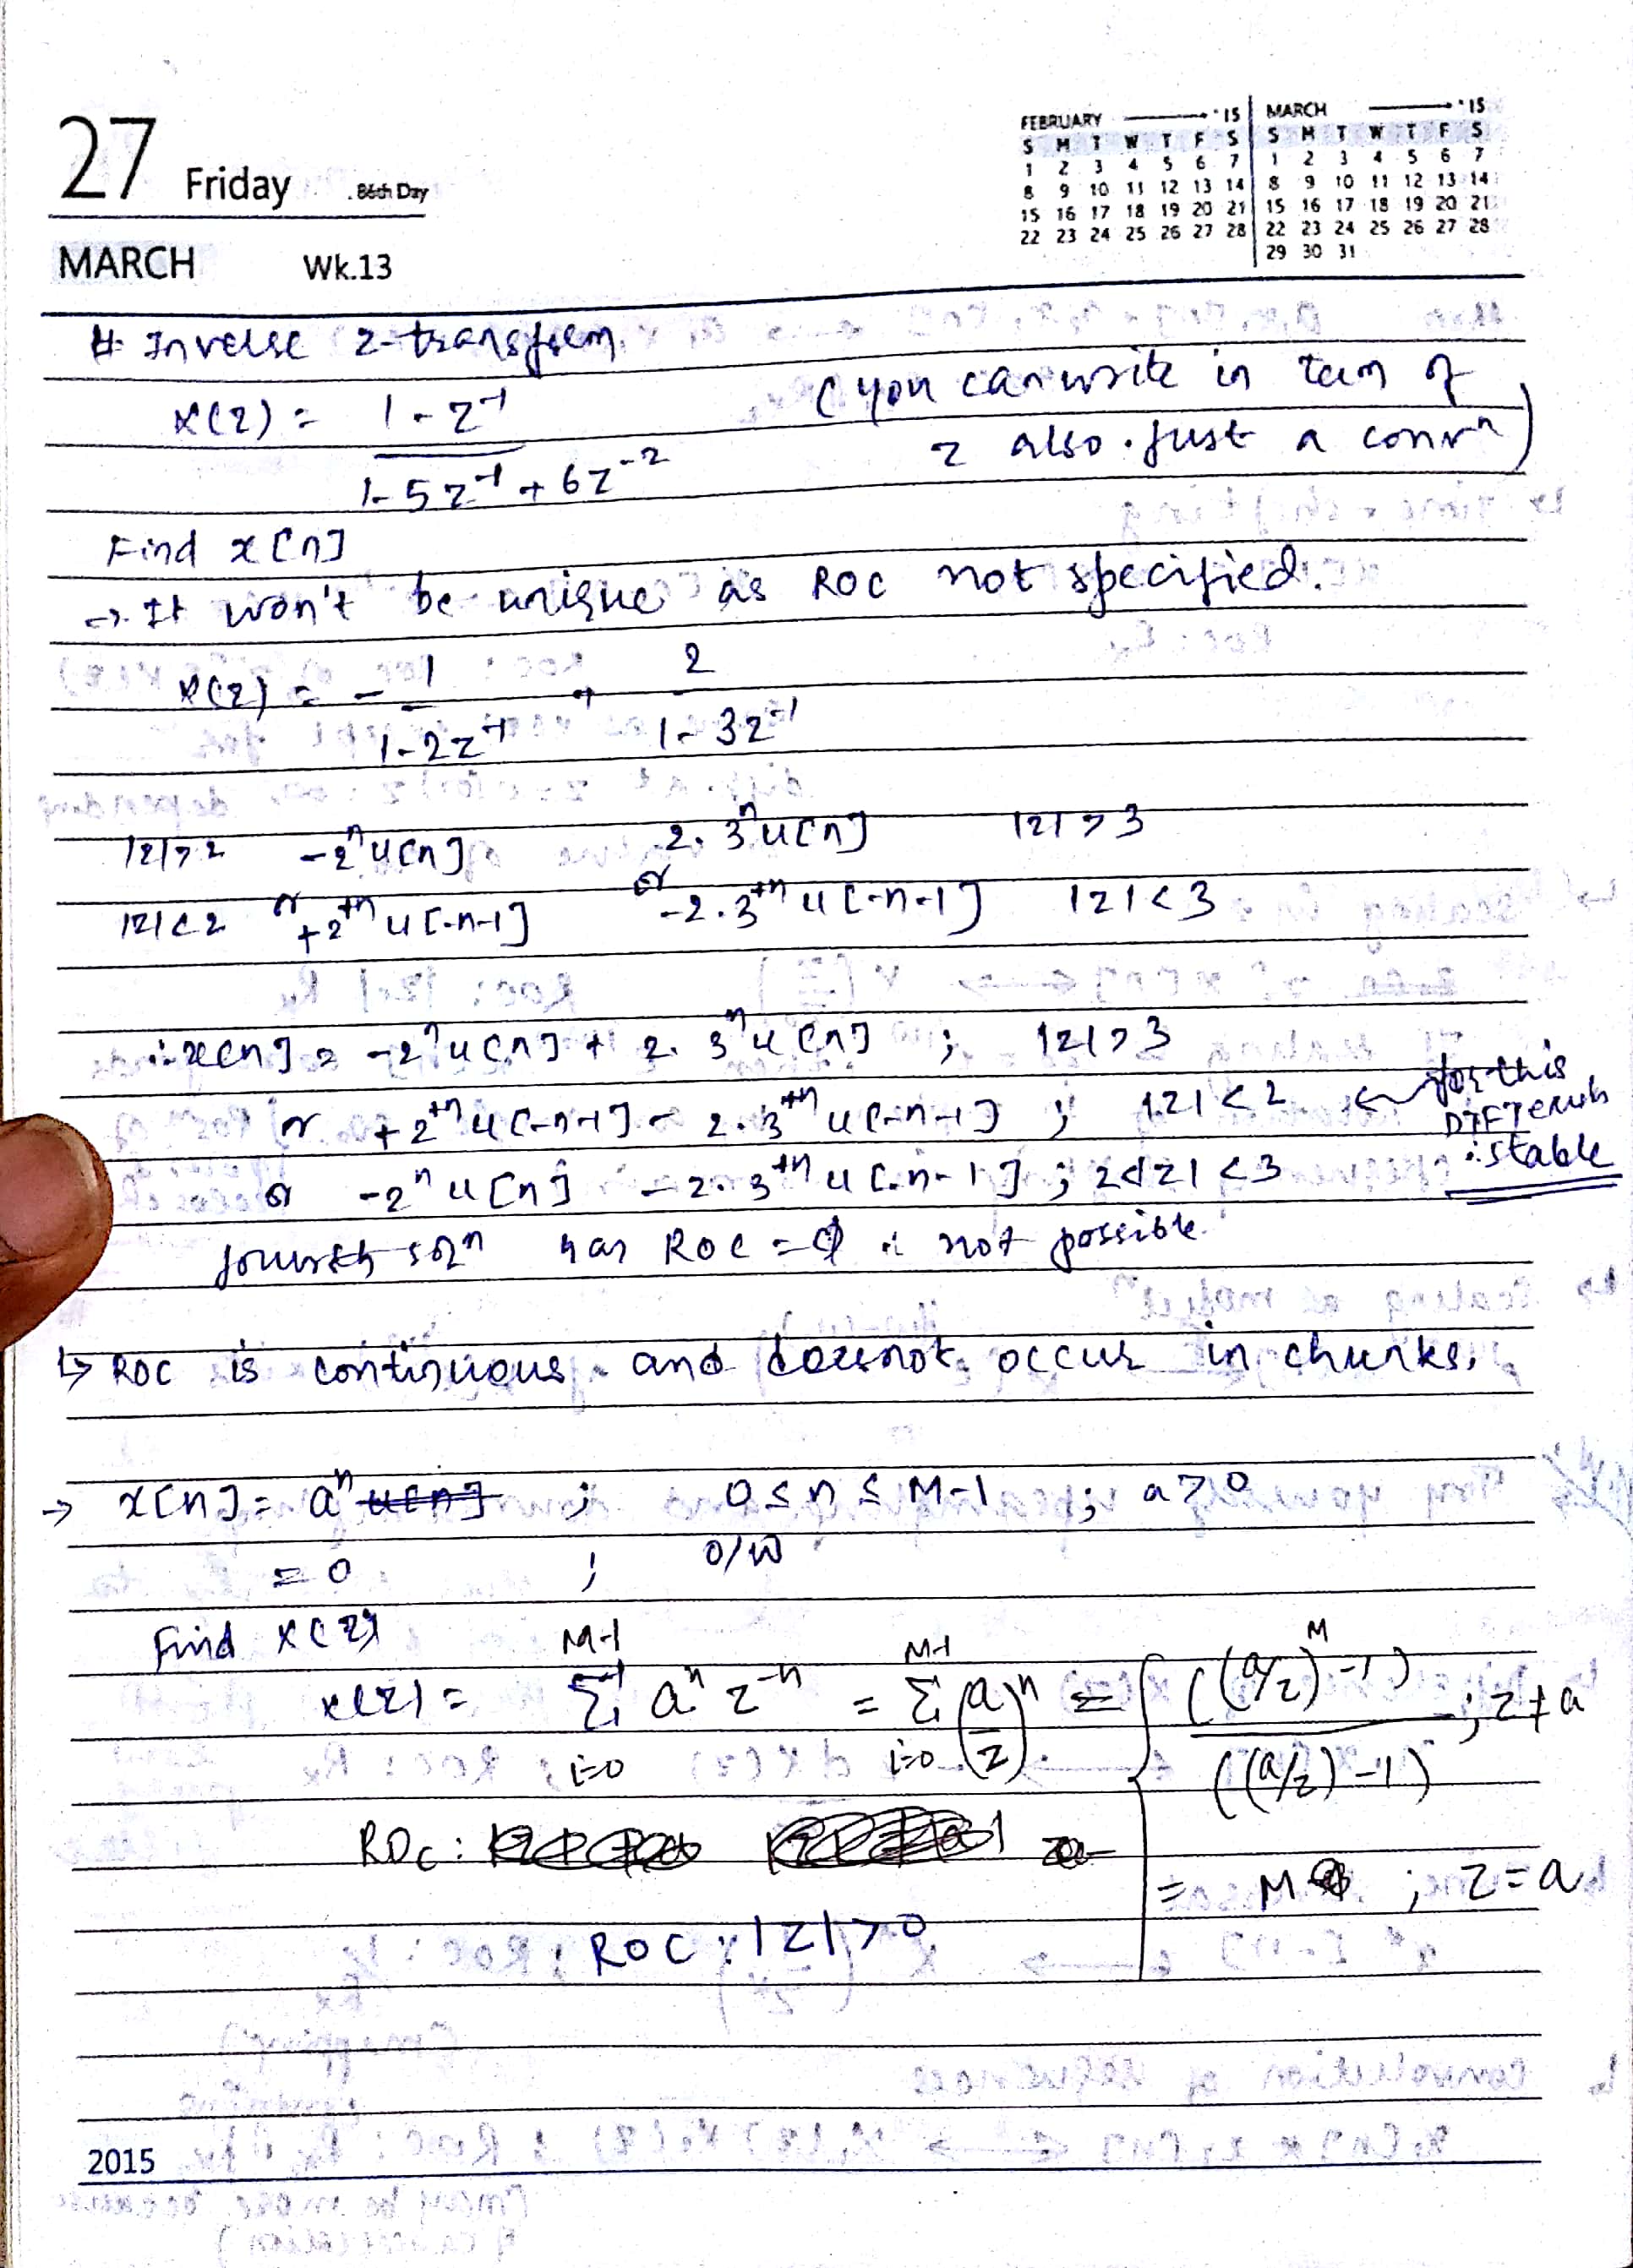 27 Friday 86th Day
MARCH Wk.13
FEBRUARY '15
S M T W T F S
1 2 3 4 5 6 7
8 9 10 11 12 13 14
15 16 17 18 19 20 21
22 23 24 25 26 27 28
MARCH '15
S M T W T F S
1 2 3 4 5 6 7
8 9 10 11 12 13 14
15 16 17 18 19 20 21
22 23 24 25 26 27 28
29 30 31
# Inverse z-transform
X(z) = (1 - z^-1) / (1 - 5z^-1 + 6z^-2) (you can write in term of
z also. Just a convn)
Find x[n]
→ It won't be unique as ROC not specified.
X(z) = -1/(1-2z^-1) + 2/(1-3z^-1)
|z|>2 -2^n u[n] 2.3^n u[n] |z|>3
or or
|z|<2 +2^+n u[-n-1] -2.3^+n u[-n-1] |z|<3
∴ x[n] = -2^n u[n] + 2.3^n u[n] ; |z|>3
or +2^+n u[-n-1] - 2.3^+n u[-n-1] ; |z|<2 ← for this
DTFT exists
∴ stable
or -2^n u[n] - 2.3^+n u[-n-1] ; 2<|z|<3
fourth soln has ROC = ϕ ∴ not possible.
↳ ROC is continuous and doesnot occur in chunks.
→ x[n] = a^n u[n] ; 0 ≤ n ≤ M-1 ; a>0
= 0 ; o/w
Find X(z)
X(z) = Σ_{i=0}^{M-1} a^n z^-n = Σ_{i=0}^{M-1} (a/z)^n = { ((a/z)^M - 1) / ((a/z) - 1) ; z≠a
= M ; z=a
ROC :
ROC : |z|>0
2015